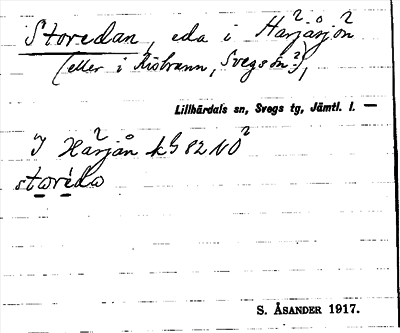 Storedan, eda i Härjåsjön
(eller i Risbrann, Svegs sn?),
Lillhärdals sn, Svegs tg, Jämtl. l. —
I Härjån k G 82 NO
S. ÅSANDER 1917.